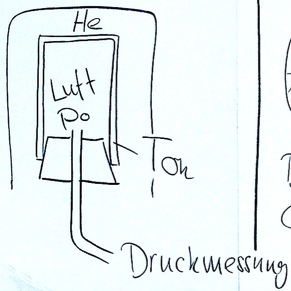 He
Luft
p₀
Ton
Druckmessung